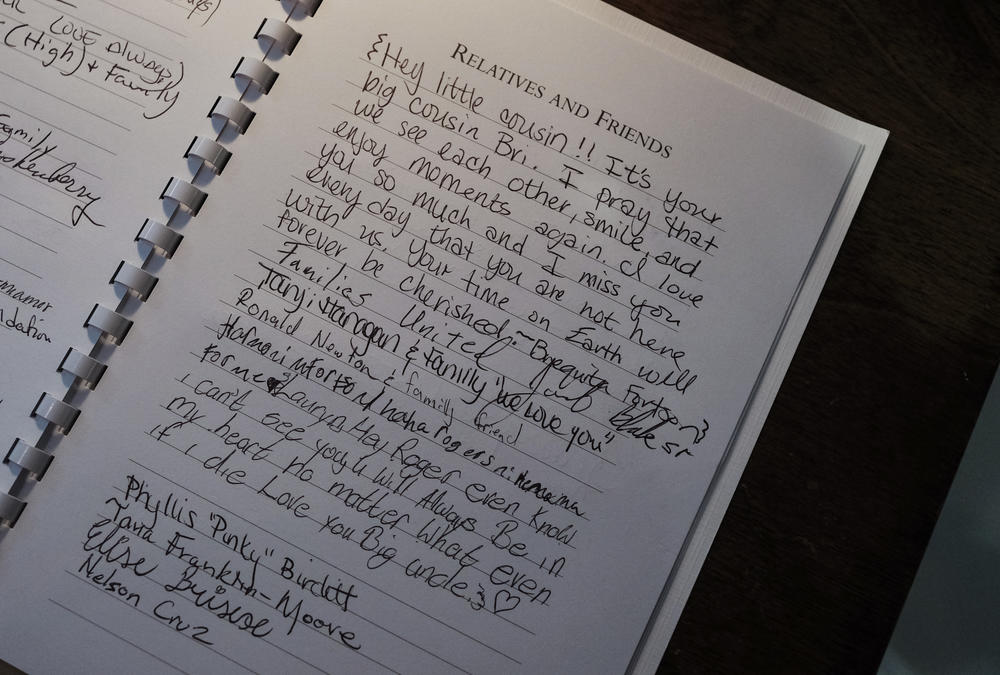 Love Always)
(High) & Family
Family
RELATIVES AND FRIENDS
{Hey little cousin!! It's your
big cousin Bri. I pray that
we see each other, smile, and
enjoy moments again. I love
you so much and I miss you
every day that you are not here
with us. Your time on Earth will
forever be cherished. ~Brequita Fortson}
Families United
& Family "We love you"
Ronald Newton & family friend
for me Laurya. Hey Roger even Know
i can't see you u Will Always Be in
my heart No matter What even
if i die Love you Big uncle.}♡
Phyllis "Pinky" Birditt
~Tavia Franklin-Moore
Ellise
Nelson Cruz